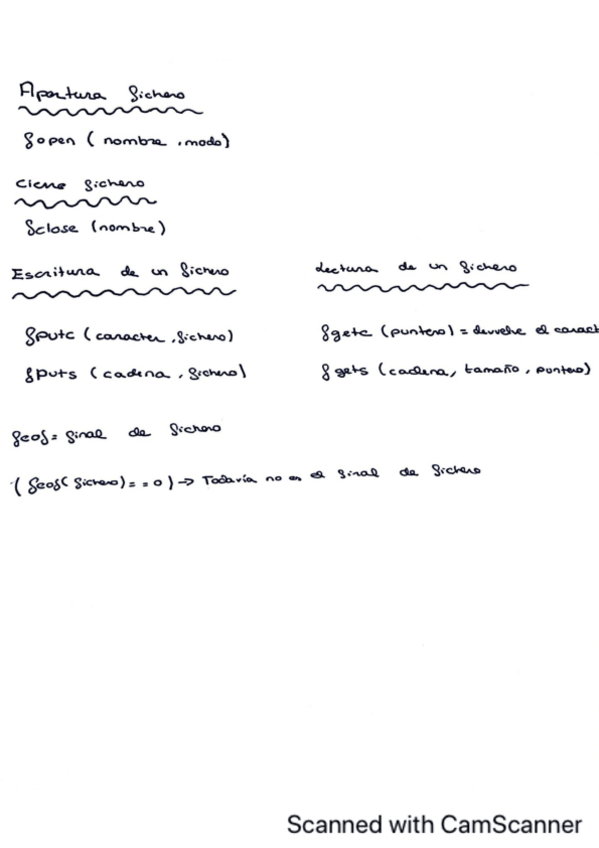 Apertura fichero
fopen ( nombre , modo)
Cierre fichero
fclose (nombre)
Escritura de un fichero
fputc ( caracter , fichero)
fputs ( cadena , fichero)
Lectura de un fichero
fgetc (puntero) = devuelve el caract
fgets (cadena, tamaño , puntero)
feof = final de fichero
( feof( fichero) = = 0 ) -> Todavía no es el final de fichero
Scanned with CamScanner